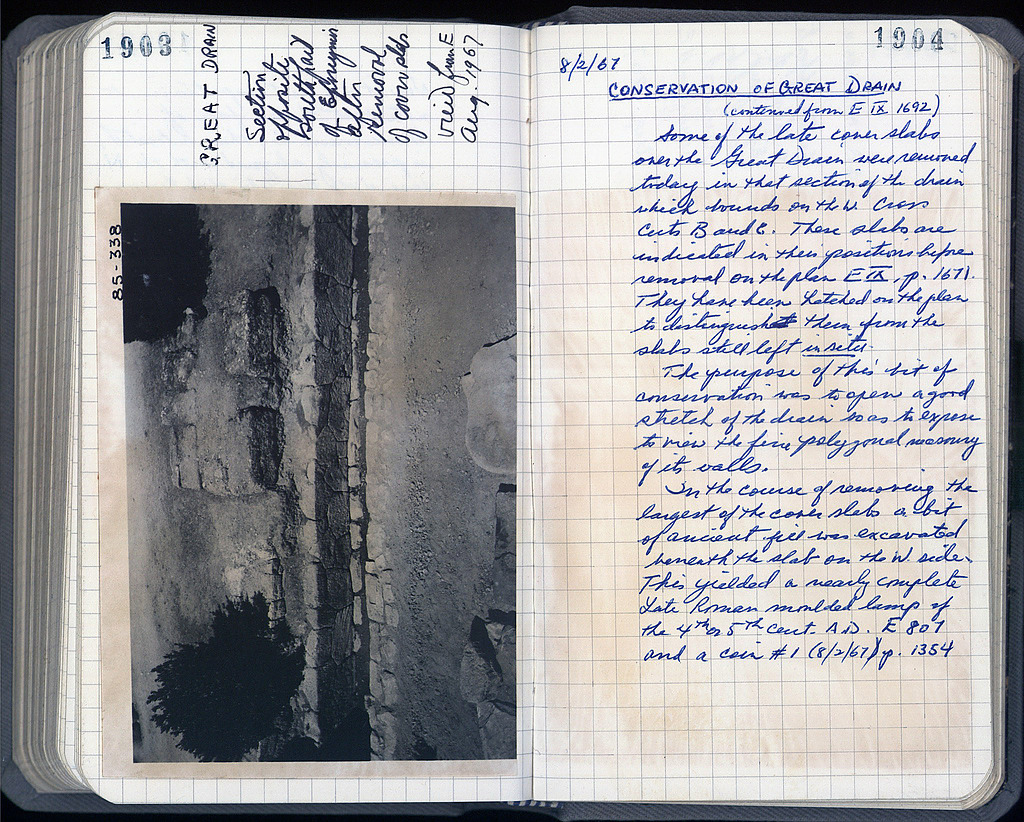 1903
GREAT DRAIN
Section
opposite
South part
of Eponymoi
after
removal
of coverslabs.
View from E
Aug. 1967
85-338
1904
8/2/67
CONSERVATION OF GREAT DRAIN
(continued from E IX 1692)
Some of the late cover slabs
over the Great Drain were removed
today in that section of the drain
which bounds on the W. Cross
Cuts B and C. These slabs are
indicated in their positions before
removal on the plan E IX, p. 1671.
They have been hatched on the plan
to distinguish them from the
slabs still left in situ.
The purpose of this bit of
conservation was to open a good
stretch of the drain so as to expose
to view the fine polygonal masonry
of its walls.
In the course of removing the
largest of the cover slabs a bit
of ancient fill was excavated
beneath the slab on the W side.
This yielded a nearly complete
Late Roman moulded lamp of
the 4th or 5th cent. A.D. E 807
and a coin #1 (8/2/67) p. 1354